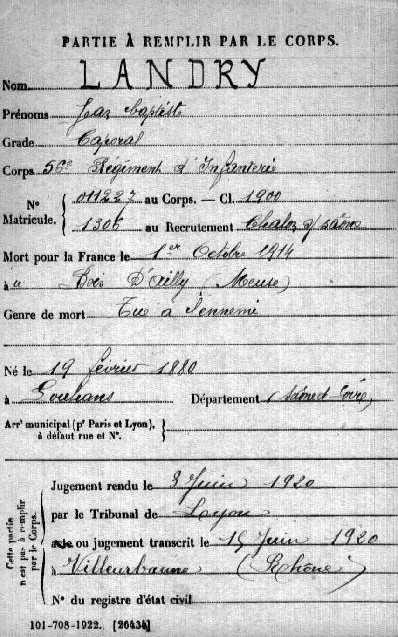 PARTIE À REMPLIR PAR LE CORPS.
Nom LANDRY
Prénoms Jean Baptiste
Grade Caporal
Corps 56e Régiment d'Infanterie
N° Matricule. { 011227 au Corps. — Cl. 1900
1306 au Recrutement Chalon s/ Saône
Mort pour la France le 1er Octobre 1914
à Bois d'Ailly (Meuse)
Genre de mort Tué à l'ennemi
Né le 19 février 1880
à Louhans Département (Saône et Loire)
Arrt municipal (pr Paris et Lyon), à défaut rue et N°. }
Cette partie n'est pas à remplir par le Corps.
Jugement rendu le 3 Juin 1920
par le Tribunal de Lyon
acte ou jugement transcrit le 15 Juin 1920
à Villeurbanne (Rhône)
N° du registre d'état civil
101-708-1922. [26434]